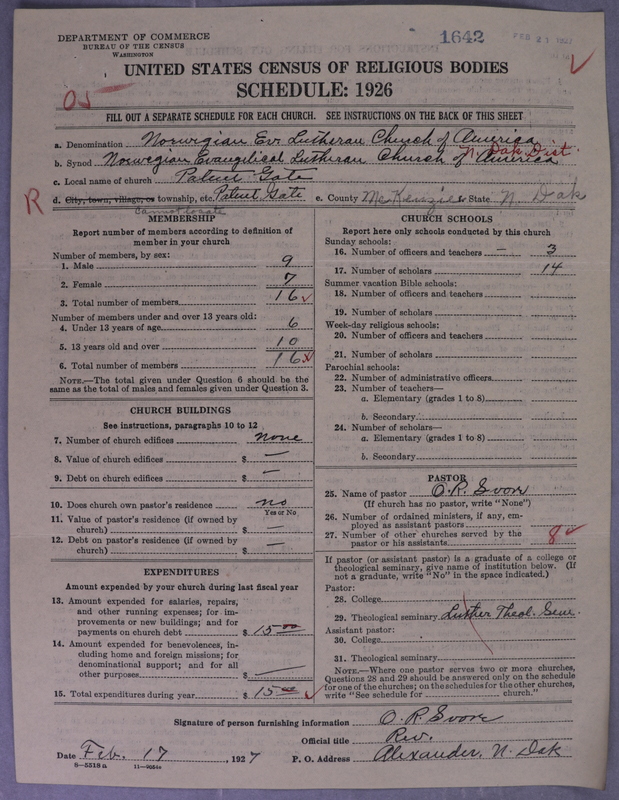 DEPARTMENT OF COMMERCE
BUREAU OF THE CENSUS
WASHINGTON
1642
FEB 21 1927
UNITED STATES CENSUS OF RELIGIOUS BODIES
SCHEDULE: 1926
05
FILL OUT A SEPARATE SCHEDULE FOR EACH CHURCH. SEE INSTRUCTIONS ON THE BACK OF THIS SHEET
a. Denomination Norwegian Ev. Lutheran Church of America
b. Synod Norwegian Evangilical Lutheran Church of America N. Dak Dist.
c. Local name of church Palent Gate
R
d. City, town, village, or township, etc. Patent Gate e. County McKenzie & State N. Dak
Cannot locate
MEMBERSHIP
Report number of members according to definition of
member in your church
Number of members, by sex:
1. Male 9
2. Female 7
3. Total number of members 16
Number of members under and over 13 years old:
4. Under 13 years of age 6
5. 13 years old and over 10
6. Total number of members 16
NOTE.—The total given under Question 6 should be the
same as the total of males and females given under Question 3.
CHURCH BUILDINGS
See instructions, paragraphs 10 to 12
7. Number of church edifices none
8. Value of church edifices $ —
9. Debt on church edifices $ —
10. Does church own pastor's residence no
Yes or No
11. Value of pastor's residence (if owned by
church) $ —
12. Debt on pastor's residence (if owned by
church) $ —
EXPENDITURES
Amount expended by your church during last fiscal year
13. Amount expended for salaries, repairs,
and other running expenses; for im-
provements or new buildings; and for
payments on church debt $ 15 00
14. Amount expended for benevolences, in-
cluding home and foreign missions; for
denominational support; and for all
other purposes $ —
15. Total expenditures during year $ 15 00
CHURCH SCHOOLS
Report here only schools conducted by this church
Sunday schools:
16. Number of officers and teachers — 3
17. Number of scholars 14
Summer vacation Bible schools:
18. Number of officers and teachers
19. Number of scholars
Week-day religious schools:
20. Number of officers and teachers
21. Number of scholars
Parochial schools:
22. Number of administrative officers
23. Number of teachers—
a. Elementary (grades 1 to 8)
b. Secondary
24. Number of scholars—
a. Elementary (grades 1 to 8)
b. Secondary
PASTOR
25. Name of pastor O. R. Svore
(If church has no pastor, write "None")
26. Number of ordained ministers, if any, em-
ployed as assistant pastors
27. Number of other churches served by the
pastor or his assistants 8
If pastor (or assistant pastor) is a graduate of a college or
theological seminary, give name of institution below. (If
not a graduate, write "No" in the space indicated.)
Pastor:
28. College
29. Theological seminary Luther Theol. Sem.
Assistant pastor:
30. College
31. Theological seminary
NOTE.—Where one pastor serves two or more churches,
Questions 28 and 29 should be answered only on the schedule
for one of the churches; on the schedules for the other churches,
write "See schedule for church."
Signature of person furnishing information O. R. Svore
Official title Rev.
Date Feb. 17, 1927 P. O. Address Alexander, N. Dak
8—5518a 11—9054